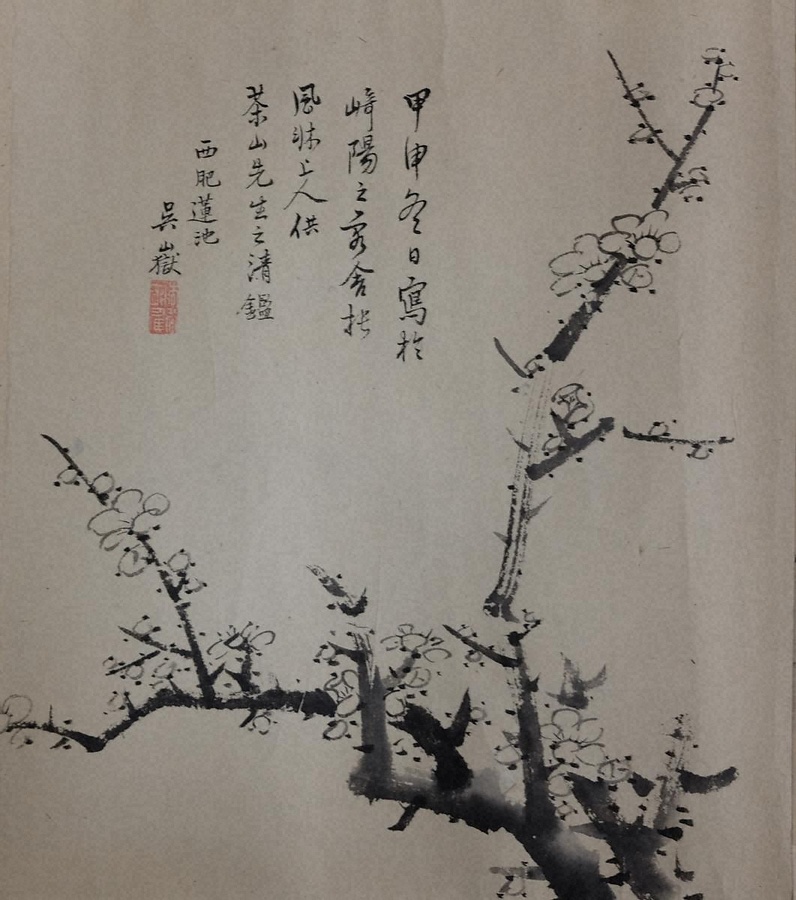 甲申冬日寫於
崎陽之客舍托
風牀上人供
茶山先生之清鑑
西肥蓮池
吳嶽